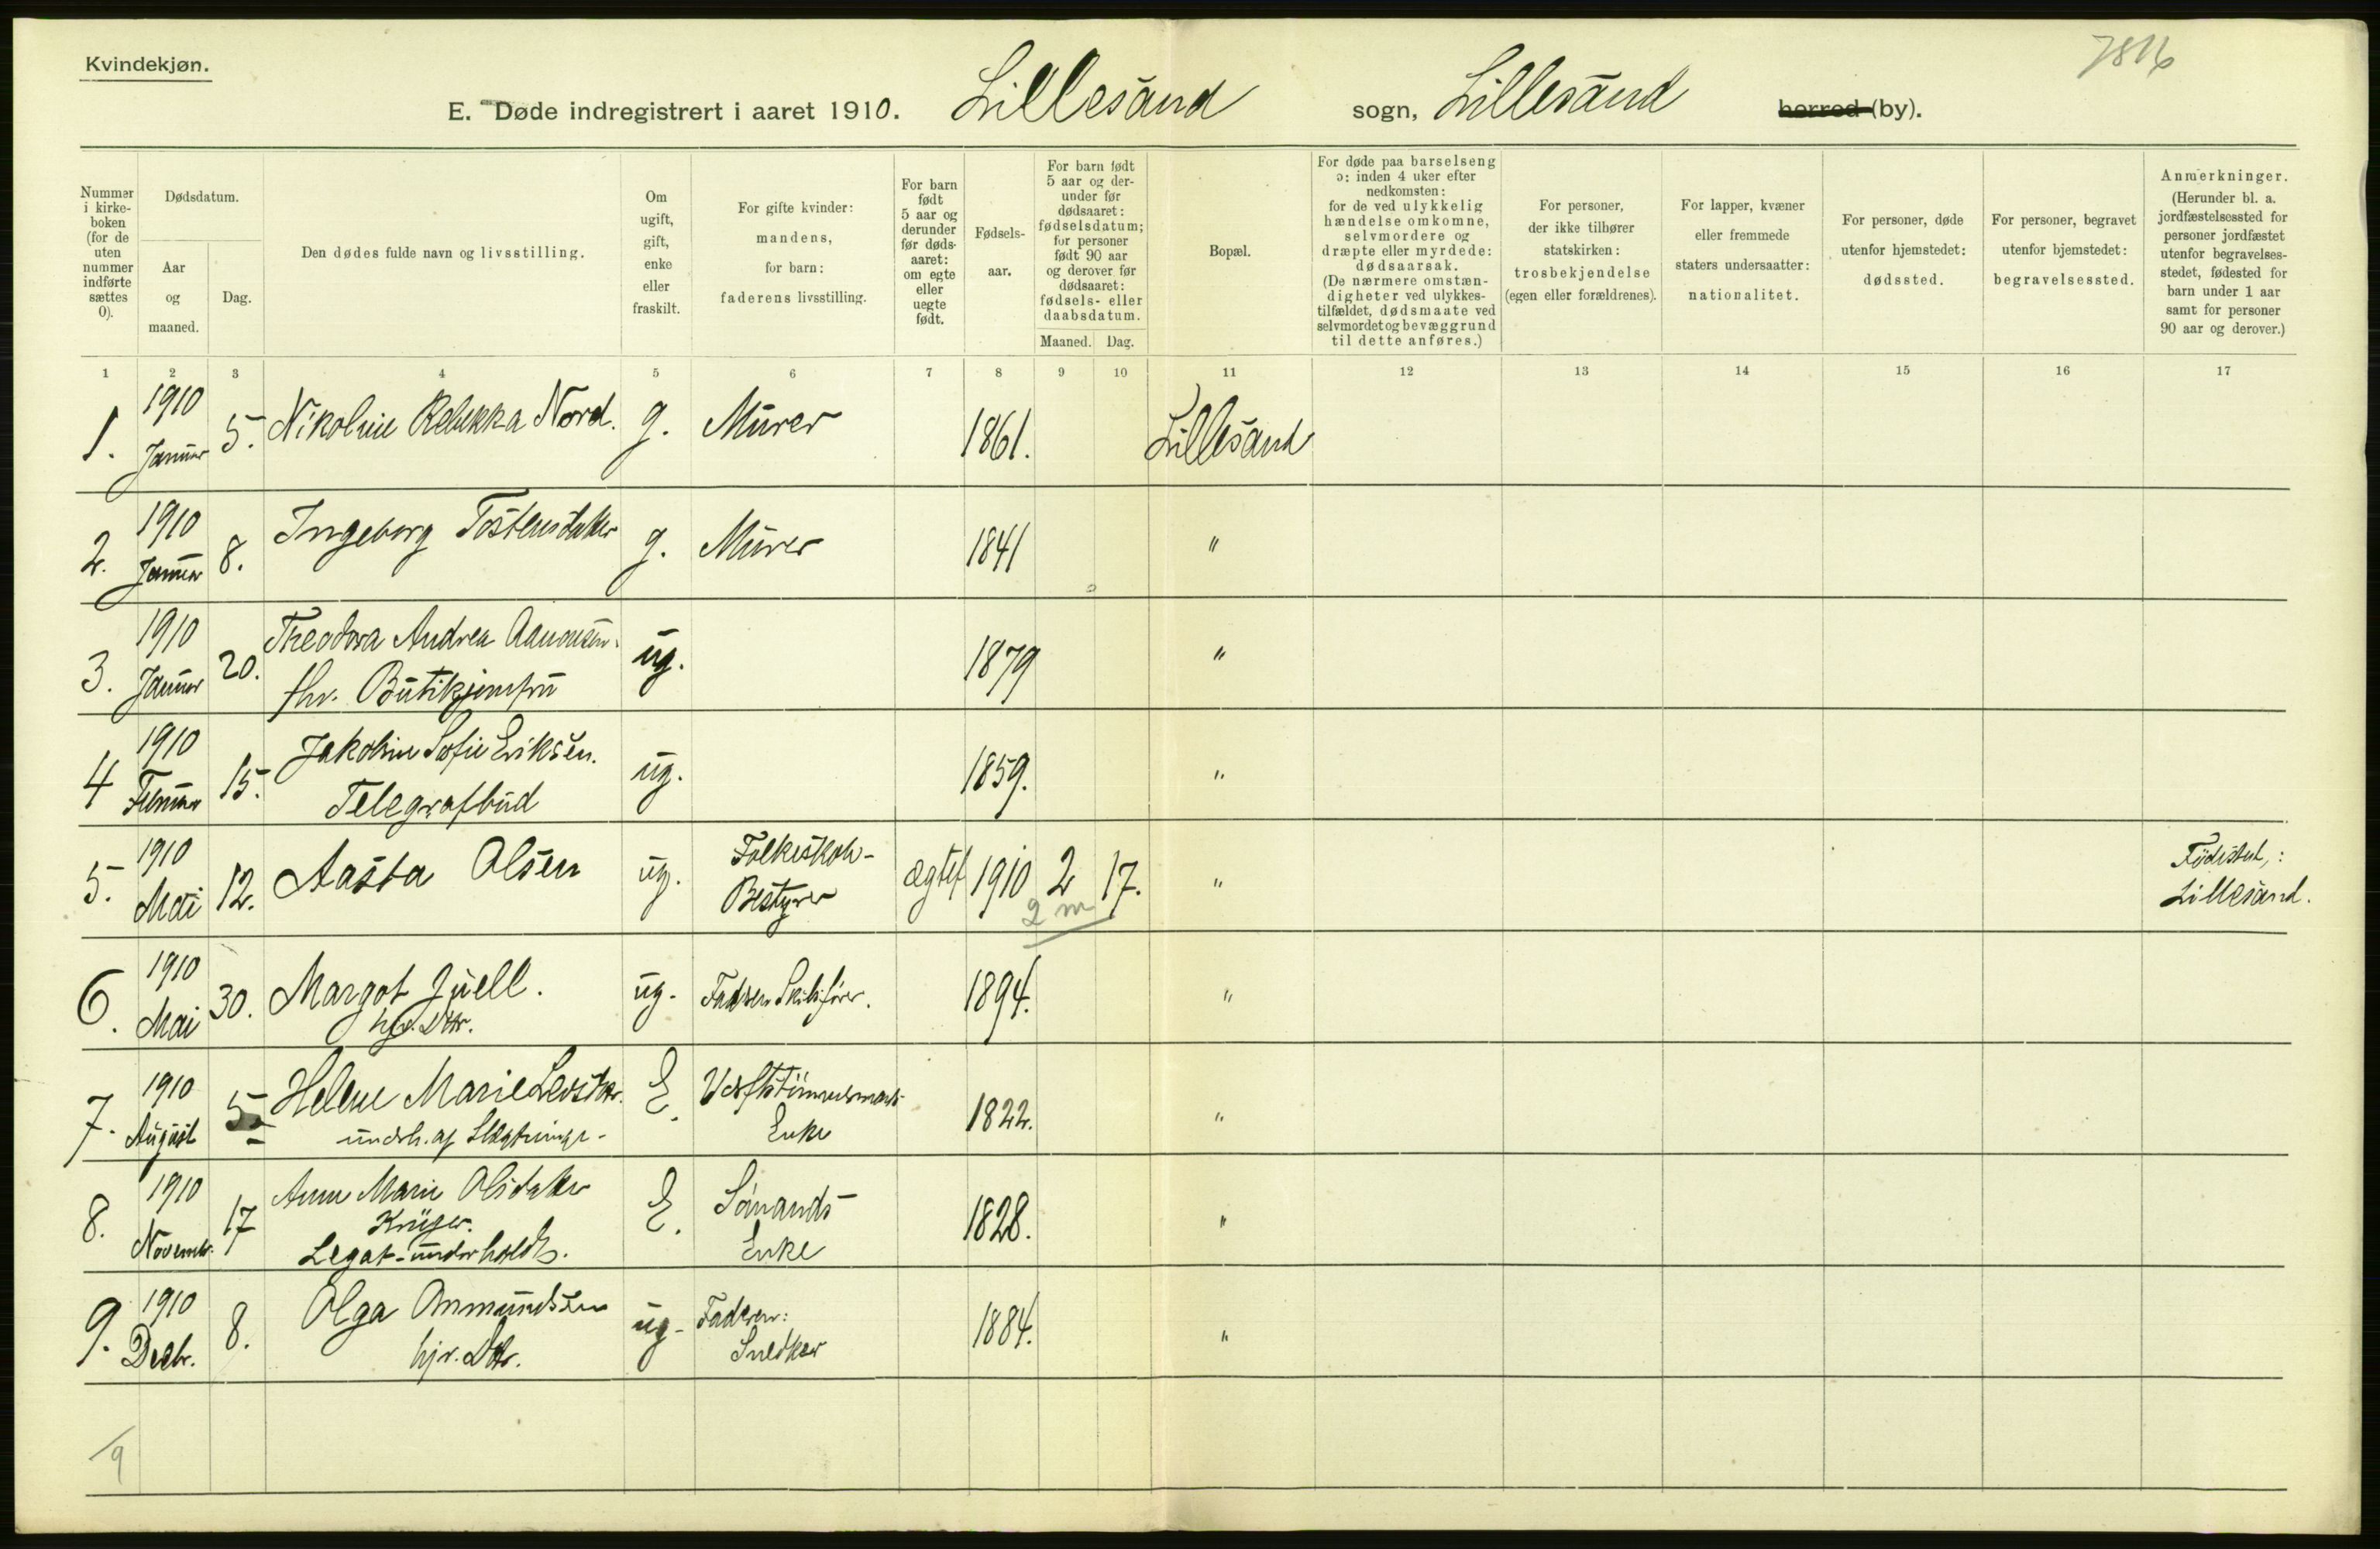 Kvindekjøn.
7816
E. Døde indregistrert i aaret 1910. Lillesand sogn, Lillesand herred (by).
Nummer i kirkeboken (for de uten nummer indførte sættes 0).
Dødsdatum.
Aar og maaned.
Dag.
Den dødes fulde navn og livsstilling.
Om ugift, gift, enke eller fraskilt.
For gifte kvinder: mandens, for barn: faderens livsstilling.
For barn født 5 aar og derunder før dødsaaret: om egte eller uegte født.
Fødselsaar.
For barn født 5 aar og derunder før dødsaaret: fødselsdatum; for personer født 90 aar og derover før dødsaaret: fødsels- eller daabsdatum.
Maaned. Dag.
Bopæl.
For døde paa barselseng ɔ: inden 4 uker efter nedkomsten: for de ved ulykkelig hændelse omkomne, selvmordere og dræpte eller myrdede: dødsaarsak. (De nærmere omstændigheter ved ulykkestilfældet, dødsmaate ved selvmordet og bevæggrund til dette anføres.)
For personer, der ikke tilhører statskirken: trosbekjendelse (egen eller forældrenes).
For lapper, kvæner eller fremmede staters undersaatter: nationalitet.
For personer, døde utenfor hjemstedet: dødssted.
For personer, begravet utenfor hjemstedet: begravelsessted.
Anmerkninger. (Herunder bl. a. jordfæstelsessted for personer jordfæstet utenfor begravelsesstedet, fødested for barn under 1 aar samt for personer 90 aar og derover.)
1 2 3 4 5 6 7 8 9 10 11 12 13 14 15 16 17
1. 1910 Januar 5. Nikoline Rebekka Nord. g. Murer 1861. Lillesand
2. 1910 Januar 8. Ingeborg Tostensdatter g. Murer 1841 "
3. 1910 Januar 20. Theodora Andrea Aanonsen. ug. 1879 "
fhv. Butikjomfru
4 1910 Februar 15. Jakobine Sofie Eriksen. ug. 1859. "
Telegrafbud
5. 1910 Mai 12. Aasta Olsen ug. Folkeskole- Bestyrer ægtef 1910 2 17. " Födested,: Lillesand.
2 m
6. 1910 Mai 30. Margot Juell. ug. Faderen Skibsförer. 1894. "
hjv. Dtr.
7. 1910 August 5 Helene Marie E. Verftstömmermands Enke 1822. "
underh. af
8. 1910 Novembr. 17 Anne Marie Olsdatter E. Sömands Enke 1828. "
Krüger.
Legat-underholdt.
9. 1910 Decbr. 8. Olga Ommundsen ug. Faderen: Snedker 1884. "
hjv. Dtr.
9